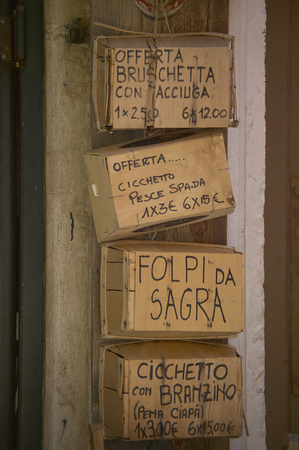 OFFERTA
BRUSCHETTA
CON ACCIUGA
1x2,50 6x12.00
OFFERTA.....
CICCHETTO
PESCE SPADA
1x3€ 6x15€
FOLPI DA
SAGRA
CICCHETTO
CON BRANZINO
(PENA CIAPÁ)
1x3,00€ 6x15,00€